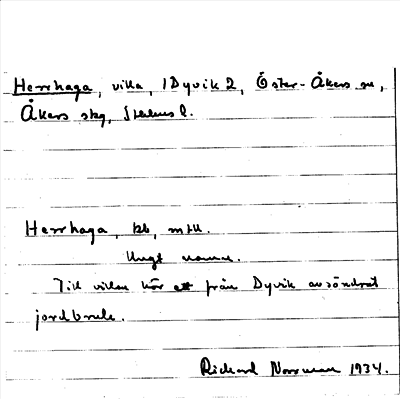 Herrhaga, villa, 1 Dyvik 2, Öster-Åkers sn,
Åkers skg, Sthlms l.
Herrhaga, bb, mtU.
Ungt namn.
Till villan hör ett från Dyvik avsöndrat
jordbruk.
Rickard Norrman 1934.